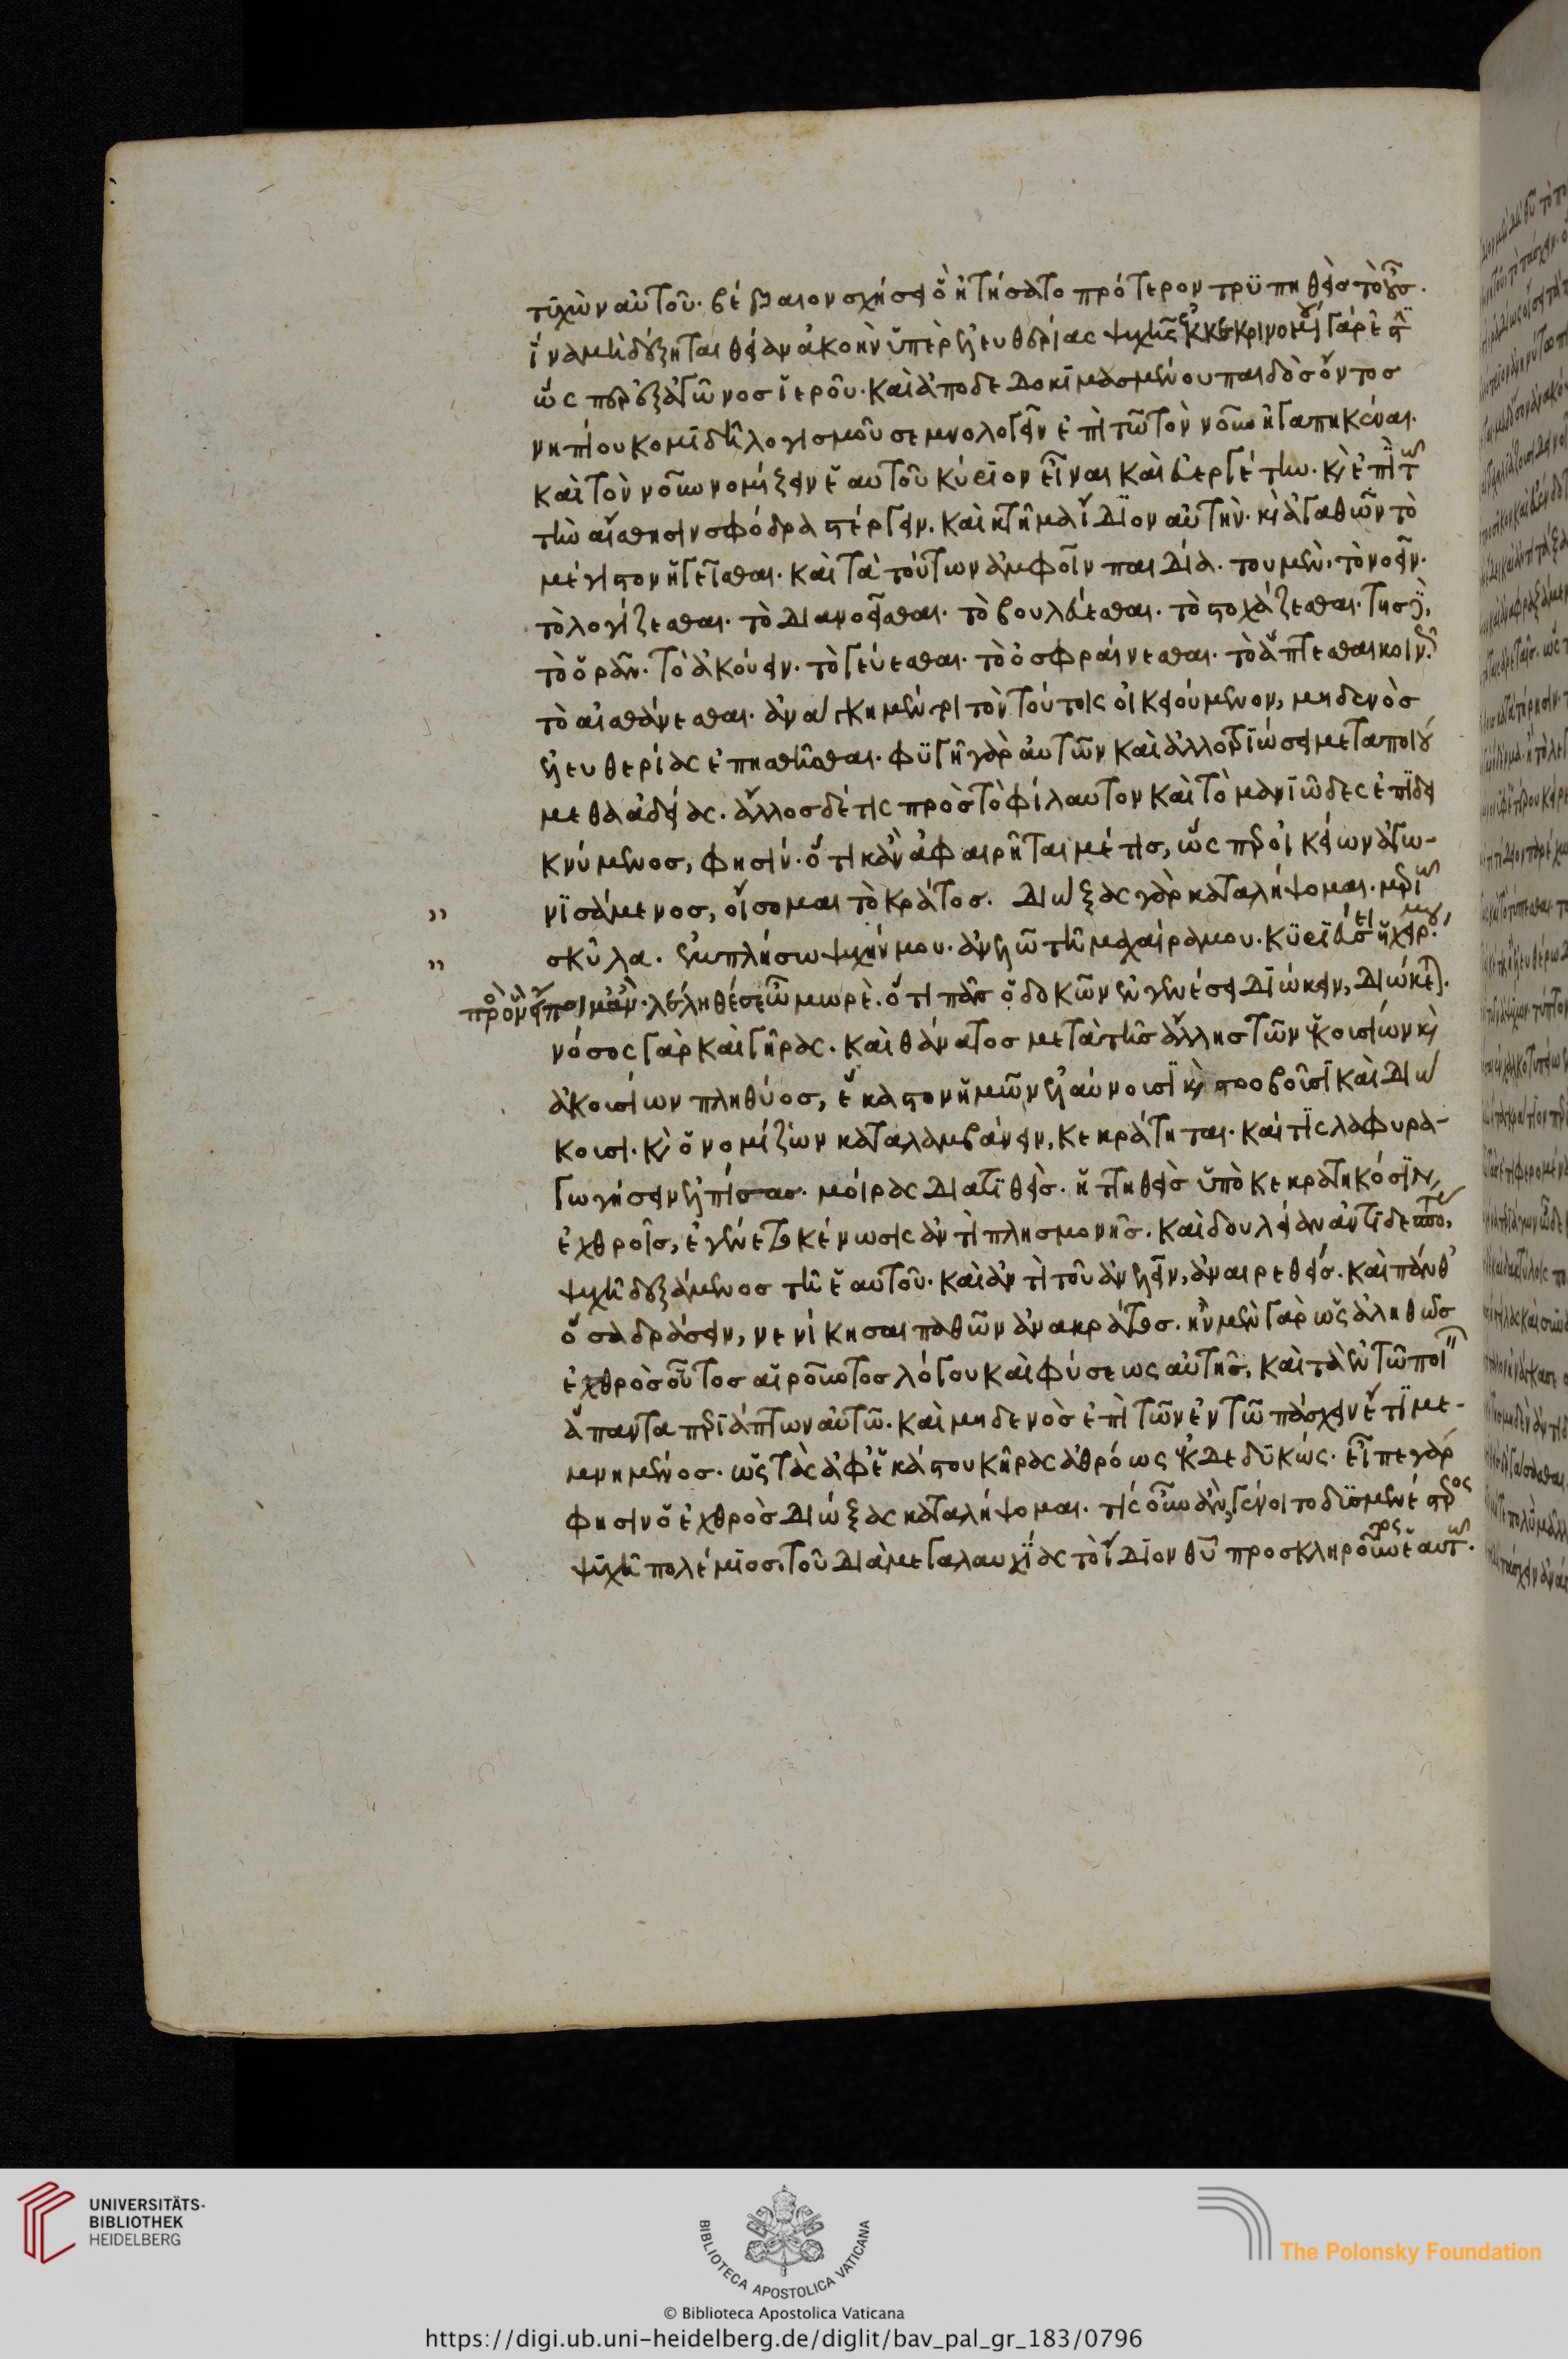 τυχὼν αὐτοῦ· βέβαιον σχήσει ὃ ἠτήσατο πρότερον τρυπηθεὶς τὸ οὖς.
ἵνα μὴ δέξηται θείαν ἀκοὴν ὑπὲρ ἐλευθερίας ψυχῆς
ὡς ἀγῶνος ἱεροῦ· καὶ ἀποδεδοκιμασμένου παιδὸς ὄντος
νηπίου κομιδῆ λογισμοῦ σεμνολογεῖν ἐπὶ τῶ τὸν νοῦν ἠγαπηκέναι.
καὶ τὸν νοῦν νομίζειν ἑαυτοῦ κύριον εἶναι καὶ εὐεργέτην. καὶ ἐπὶ τῶ
τὴν αἴσθησιν σφόδρα στέργειν. καὶ κτῆμα ἴδιον αὐτὴν. καὶ ἀγαθῶν τὸ
μέγιστον ἡγεῖσθαι. καὶ τὰ τούτων ἀμφοῖν παιδία. του μὲν. τὸ νοεῖν.
τὸ λογίζεσθαι. τὸ διανοεῖσθαι. τὸ βουλεύεσθαι. τὸ στοχάζεσθαι. τῆς δὲ,
τὸ ὁρᾶν. τὸ ἀκούειν. τὸ γεύεσθαι. τὸ ὀσφραίνεσθαι. τὸ ἅπτεσθαι κοινῆ.
τὸ αἰσθάνεσθαι. ἀνάγκη μὲν τὸν τούτοις οἰκειούμενον, μηδενὸς
ἐλευθερίας ἐπησθῆσθαι. φυγῆ γὰρ αὐτῶν καὶ ἀλλοτριώσει μεταποιού
μεθα ἀδείας. ἄλλος δέ τις πρὸς τὸ φίλαυτον καὶ τὸ μανιῶδες ἐπιδει
κνύμενος, φησίν. ὅτι κἂν ἀφαιρῆται μέ τις, ὡς περὶ οἰκείων ἀγω-
νισάμενος, οἴσομαι τὸ κράτος. διώξας γὰρ καταλήψομαι. μεριῶ
σκῦλα. ἐμπλήσω ψυχήν μου. ἀνελῶ τῆ μαχαίρα μου. κυριεύσει ἡ χείρ μου,
πρὸς ὃν εἴποιμ’ ἄν. λέληθέ σε ὦ μωρὲ. ὅτι πᾶς ὁ δοκῶν ἐν γενέσει διώκειν, διώκεται.
νόσος γὰρ καὶ γῆρας. καὶ θάνατος μετὰ τῆς ἄλλης τῶν ἑκουσίων καὶ
ἀκουσίων πληθύος, ἕκαστον ἡμῶν ἐλαύνουσι καὶ στροβοῦσι καὶ διώ
κουσι. καὶ ὁ νομίζων καταλαμβάνειν, κεκράτηται. καί τις λαφυρα-
γωγήσειν ἐλπίσας. μοίρας διατιθεὶς. ἡττηθεὶς ὑπὸ κεκρατηκόσιν,
ἐχθροῖς, ἐγένετο κένωσις ἀντὶ πλησμονῆς. καὶ δουλείαν ἀντὶ δεσπότου,
ψυχῆ δεξάμενος τῆ ἑαυτοῦ. καὶ ἀντὶ τοῦ ἀνελεῖν, ἀναιρεθείς. καὶ πάνθ’
ὅσα δράσειν, νενίκησαι παθῶν ἀνὰ κράτος. ἦν μὲν γὰρ ὡς ἀληθῶς
ἐχθρὸς οὗτος αἱροῦντος λόγου καὶ φύσεως αὐτῆς, καὶ τὰ ἐν τῶ ποιεῖν
ἅπαντα περιάπτων αὐτῶ. καὶ μηδενὸς ἐπὶ τῶν ἐν τῶ πάσχειν ἔτι με-
μνημένος. ὡς τὰς ἀφ’ ἑκάστου κῆρας ἀθρόως ἐκδεδυκώς. εἶπε γὰρ
φησιν ὁ ἐχθρὸς διώξας καταλήψομαι. τίς οὖν ἂν γένοιτο δυσμενέστερος
ψυχῆ πολέμιος. τοῦ διὰ μεγαλαυχίας τὸ ἴδιον θεοῦ προσκληροῦντος ἑαυτῶ.
UNIVERSITÄTS-
BIBLIOTHEK
HEIDELBERG
BIBLIOTECA APOSTOLICA VATICANA
The Polonsky Foundation
© Biblioteca Apostolica Vaticana
https://digi.ub.uni-heidelberg.de/diglit/bav_pal_gr_183/0796